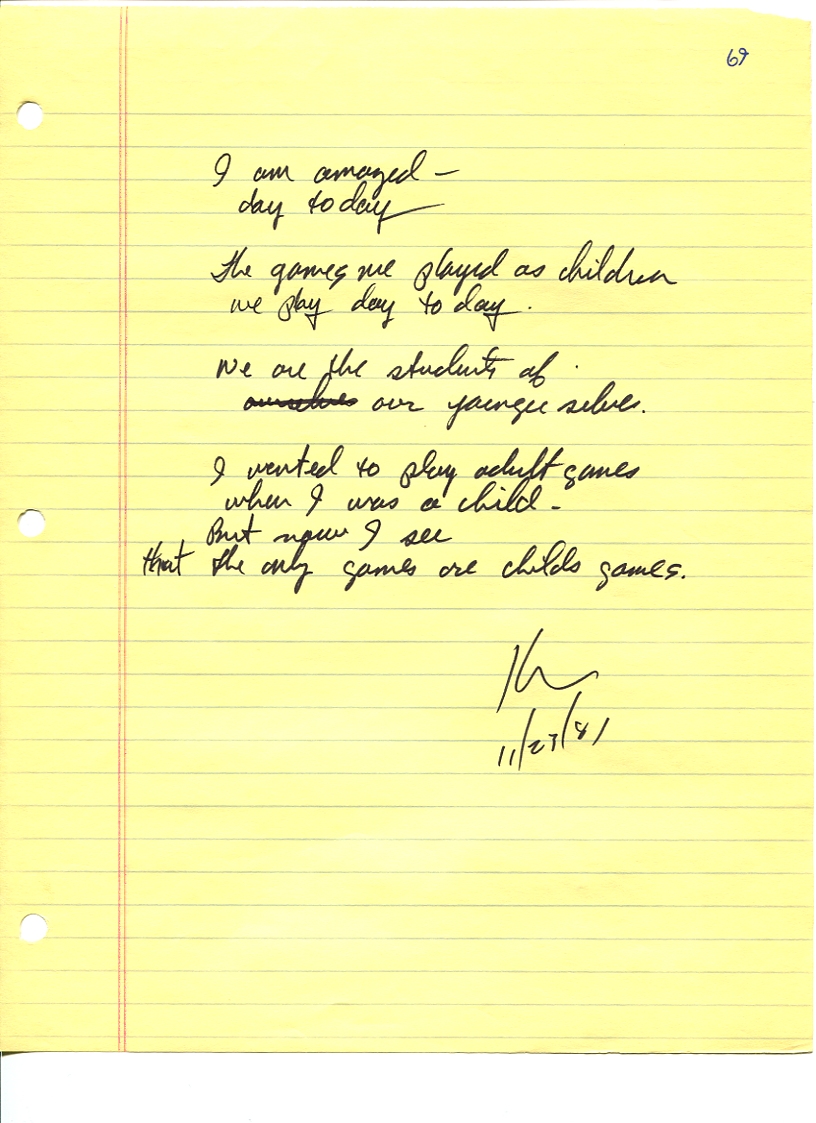 69
I am amazed —
day to day —
The games we played as children
we play day to day.
We are the students of
ourselves our younger selves.
I wanted to play adult games
when I was a child -
But now I see
that the only games are childs games.
11/23/81